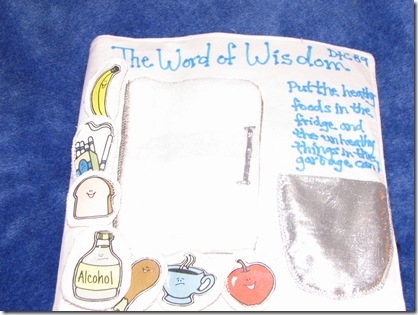 The Word of Wisdom
D+C 89
Put the healthy
foods in the
fridge and
the unhealthy
things in the
garbage can!
Alcohol